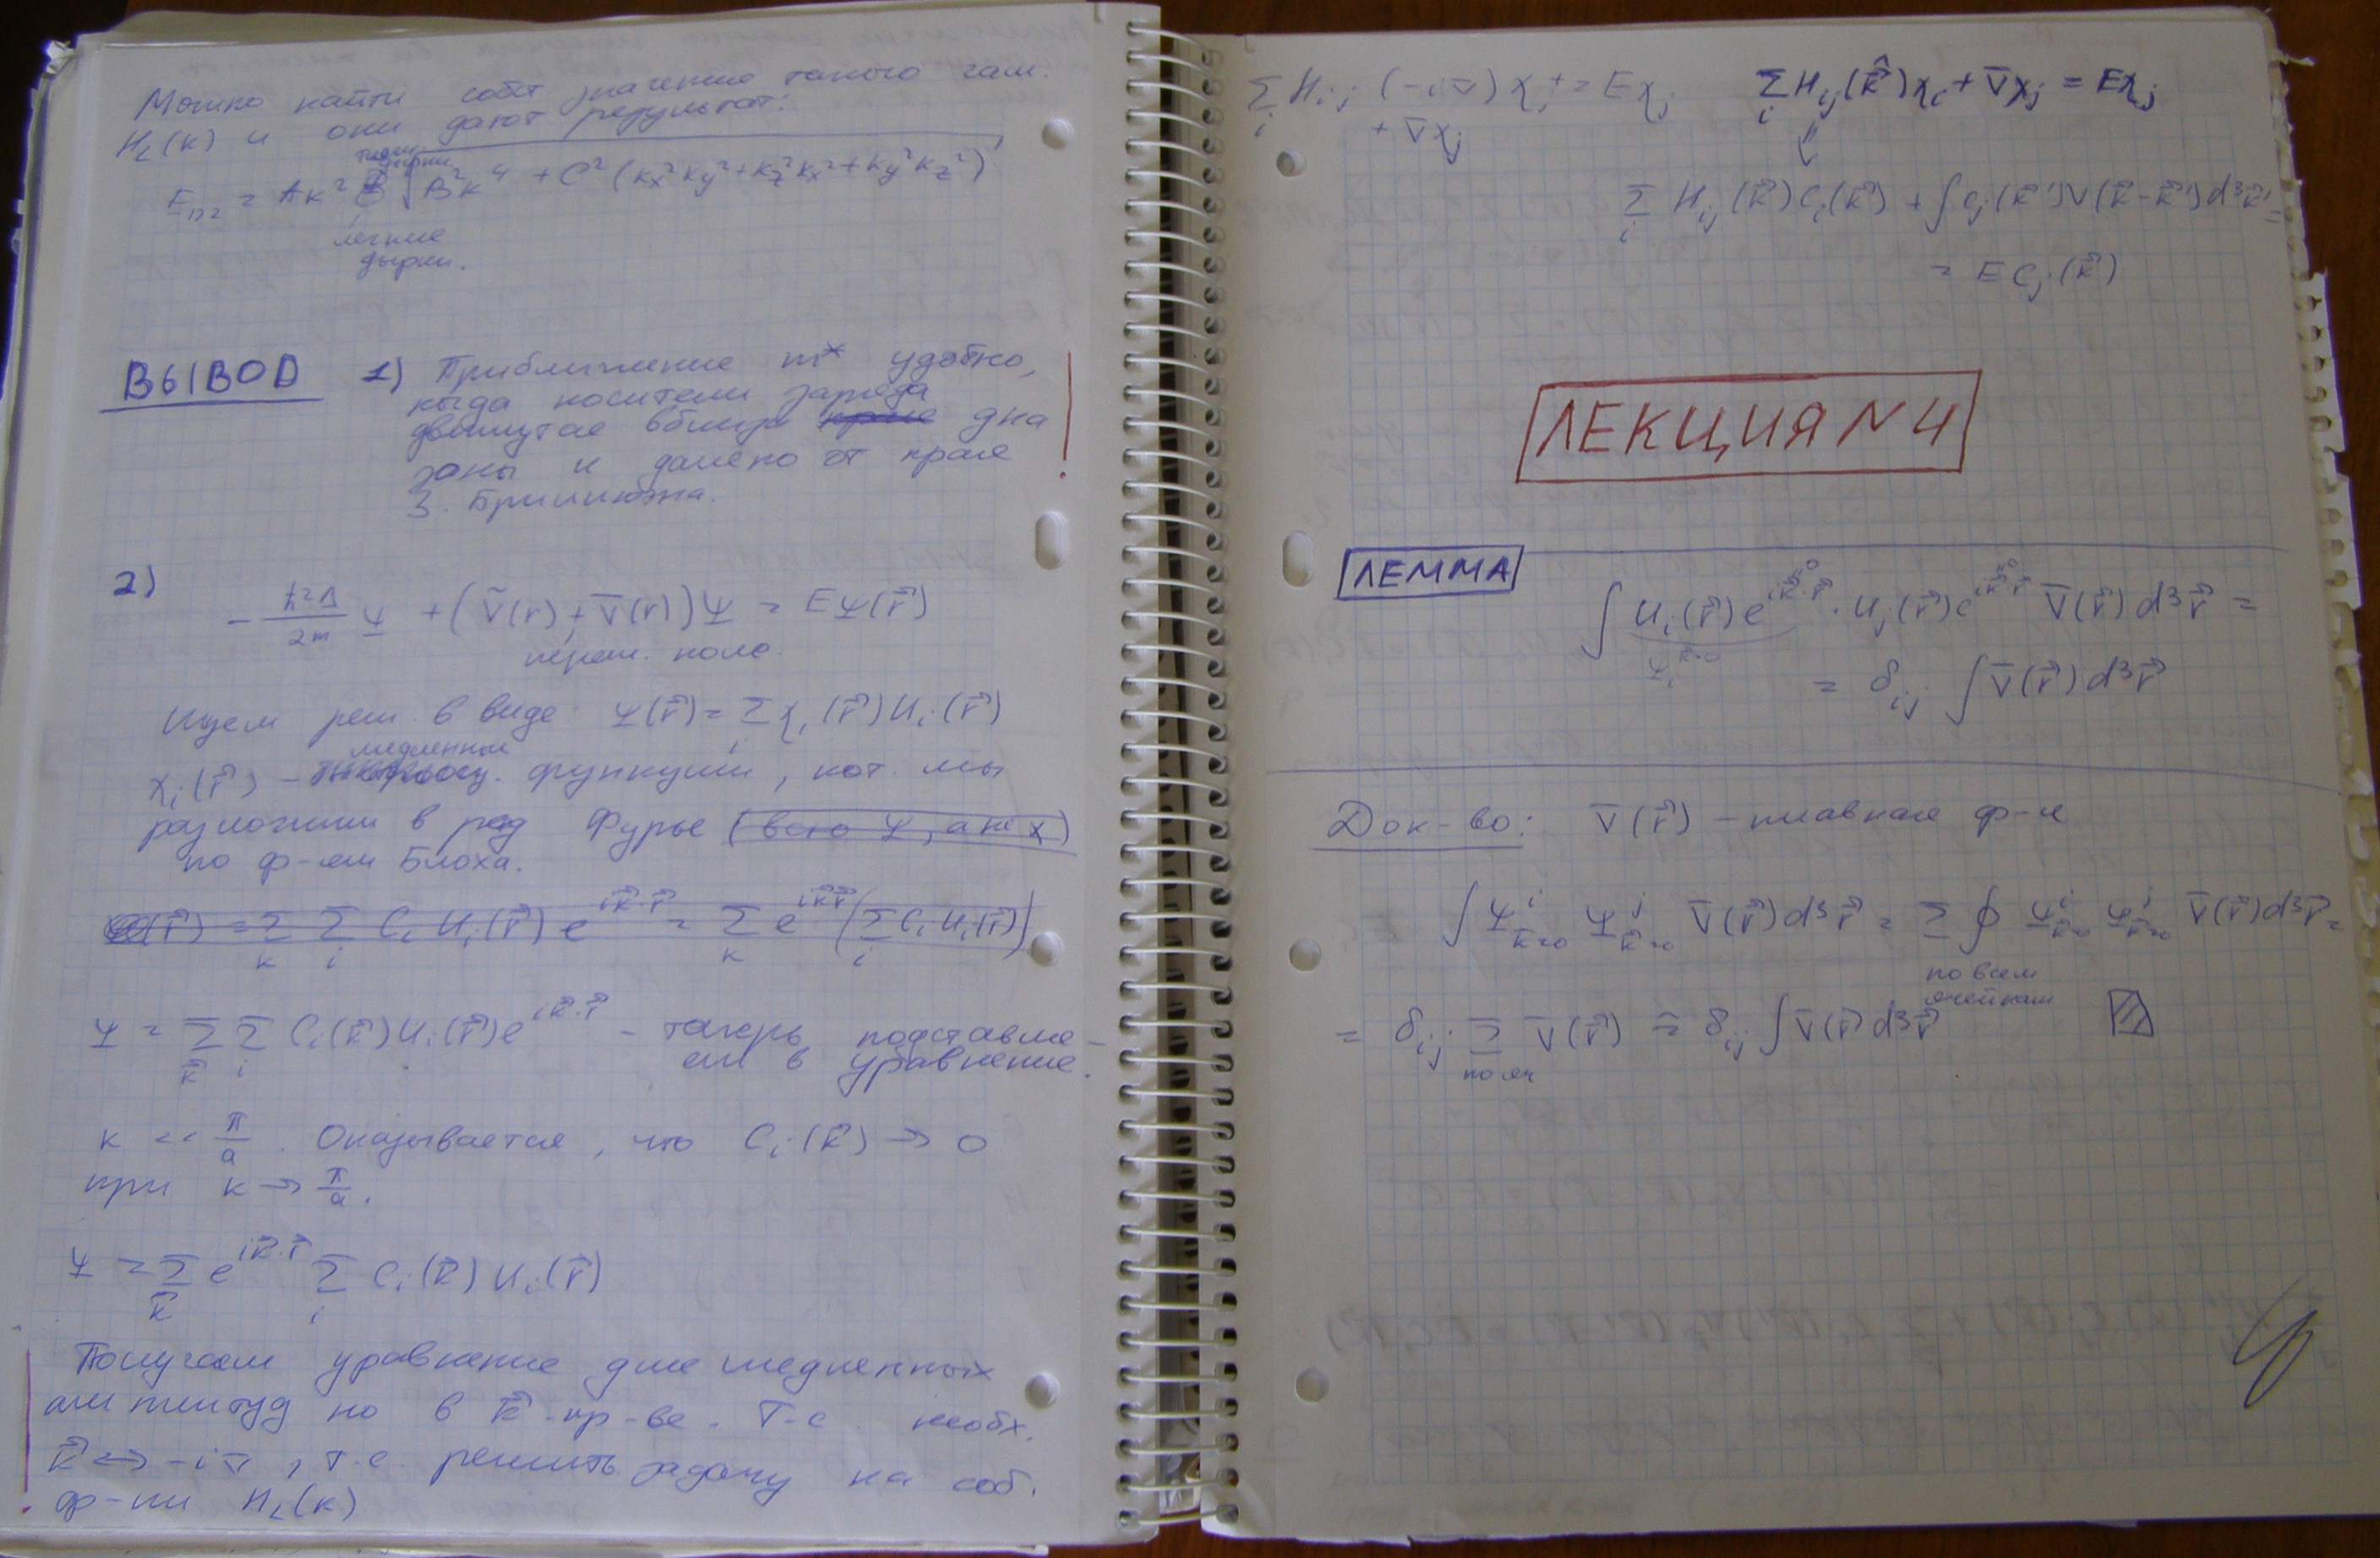 Можно найти собст. значение такого гам.
H_L(k) и они дают результат:
тяжел.
дырки
E_{1,2} = Ak² ± √(B²k⁴ + C²(kx²ky² + kz²kx² + ky²kz²))
легкие
дырки.
ВЫВОД 1) Приближение m* удобно,
когда носители заряда
движутся вблизи дна
зоны и далеко от края
З. Бриллюэна.
2) -ħ²Δ/2m Ψ + (Ṽ(r) + V̄(r))Ψ = EΨ(r⃗)
период. поле.
Ищем реш. в виде: Ψ(r⃗) = Σ_i χ_i(r⃗) U_i(r⃗)
медленные
χ_i(r⃗) – функции, кот. мы
разложим в ряд Фурье (всю Ψ, а не χ)
по ф-ям Блоха.
(r⃗) = Σ_k Σ_i C_i U_i(r⃗) e^{ik⃗·r⃗} = Σ_k e^{ik⃗r⃗} (Σ_i C_i U_i(r⃗))
Ψ = Σ_k⃗ Σ_i C_i(k⃗) U_i(r⃗) e^{ik⃗·r⃗} – теперь подставля-
ем в уравнение.
k << π/a. Оказывается, что C_i(k⃗) → 0
при k → π/a.
Ψ = Σ_k⃗ e^{ik⃗·r⃗} Σ_i C_i(k⃗) U_i(r⃗)
Получаем уравнение для медленных
амплитуд но в k⃗-пр-ве. Т.е. необх.
k⃗ ↔ -i∇, т.е. решить задачу на соб.
ф-ии H_L(k)
Σ_i H_ij (-i∇) χ_i + = Eχ_j
+ V̄χ_j
Σ_i H_ij(k⃗̂)χ_i + V̄χ_j = Eχ_j
⇓
Σ_i H_ij(k⃗) C_i(k⃗) + ∫C_j(k⃗')V(k⃗-k⃗')d³k⃗' =
= E C_j(k⃗)
ЛЕКЦИЯ N 4
ЛЕММА
∫ U_i(r⃗) e^{ik⃗·r⃗} · U_j(r⃗) e^{ik⃗·r⃗} V̄(r⃗) d³r⃗ =
= δ_ij ∫ V̄(r⃗) d³r⃗
Док-во: V̄(r⃗) – плавная ф-я
∫ Ψ^i_{k⃗=0} Ψ^j_{k⃗=0} V̄(r⃗) d³r⃗ = Σ ∮ Ψ^i_{k⃗=0} Ψ^j_{k⃗=0} V̄(r⃗) d³r⃗ =
по всем
ячейкам
= δ_ij Σ V̄(r⃗) = δ_ij ∫ V̄(r⃗) d³r⃗
по яч